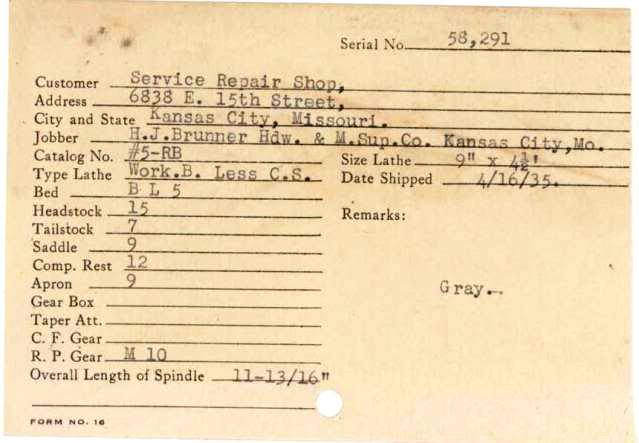 Serial No. 58,291
Customer Service Repair Shop,
Address 6838 E. 15th Street,
City and State Kansas City, Missouri.
Jobber H.J.Brunner Hdw. & M.Sup.Co. Kansas City,Mo.
Catalog No. #5-RB Size Lathe 9" x 4½'
Type Lathe Work.B. Less C.S. Date Shipped 4/16/35.
Bed B L 5
Headstock 15 Remarks:
Tailstock 7
Saddle 9
Comp. Rest 12
Apron 9 Gray.
Gear Box
Taper Att.
C. F. Gear
R. P. Gear M 10
Overall Length of Spindle 11-13/16"
FORM NO. 16